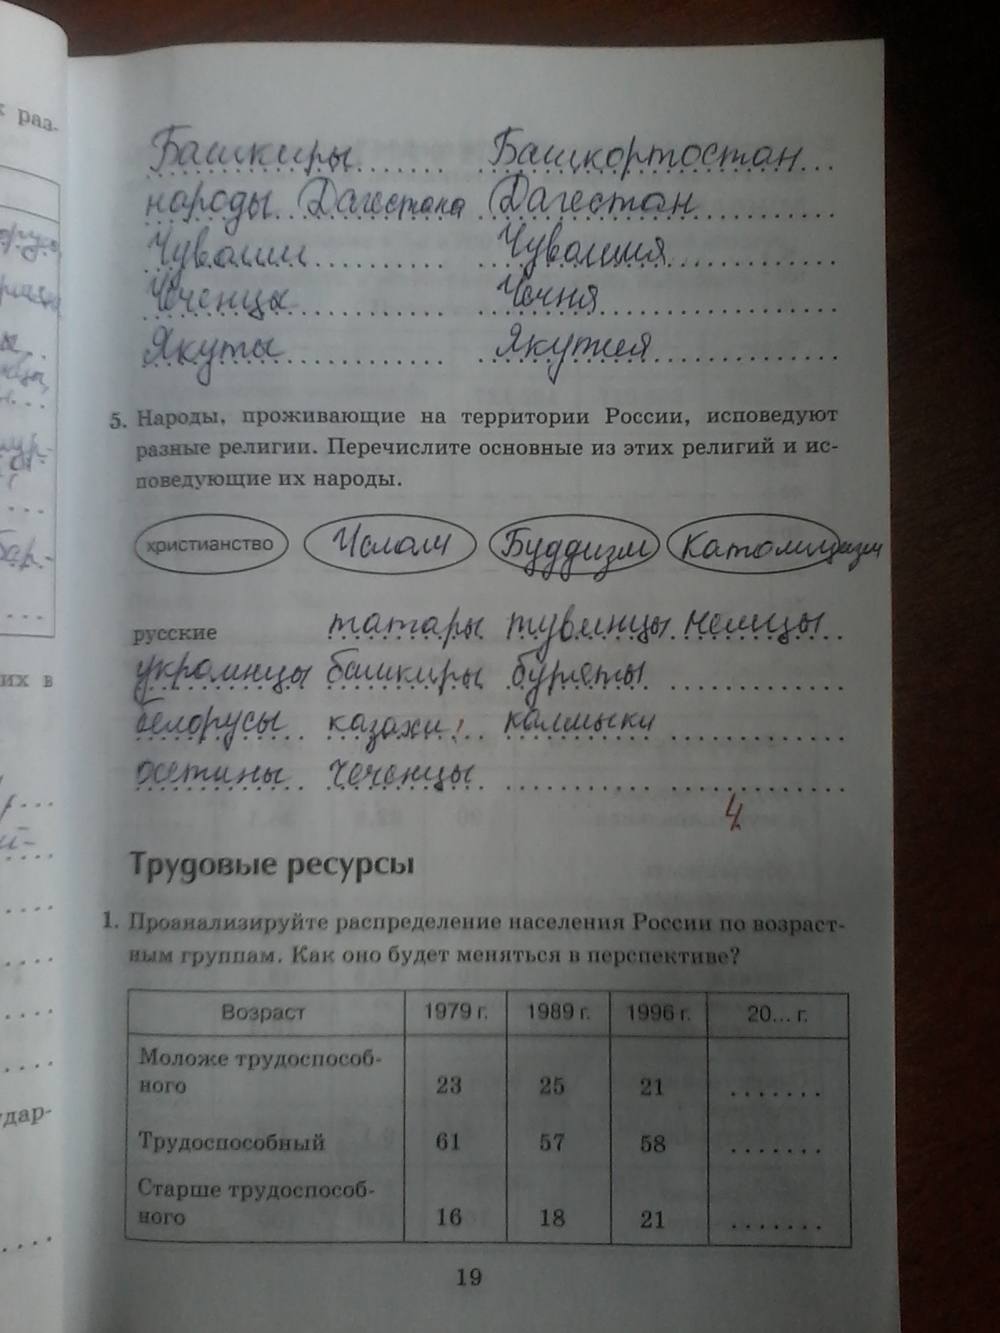 х раз-
Башкиры Башкортостан
народы Дагестана Дагестан
Чуваши Чувашия
Чеченцы Чечня
Якуты Якутия
5. Народы, проживающие на территории России, исповедуют
разные религии. Перечислите основные из этих религий и ис-
поведующие их народы.
христианство Ислам Буддизм Католицизм
русские татары тувинцы немцы
украинцы башкиры буряты
белорусы казахи! калмыки
осетины чеченцы
4
их в
Трудовые ресурсы
1. Проанализируйте распределение населения России по возраст-
ным группам. Как оно будет меняться в перспективе?
Возраст 1979 г. 1989 г. 1996 г. 20... г.
Моложе трудоспособ-
ного 23 25 21 .......
Трудоспособный 61 57 58 .......
Старше трудоспособ-
ного 16 18 21 .......
удар-
19